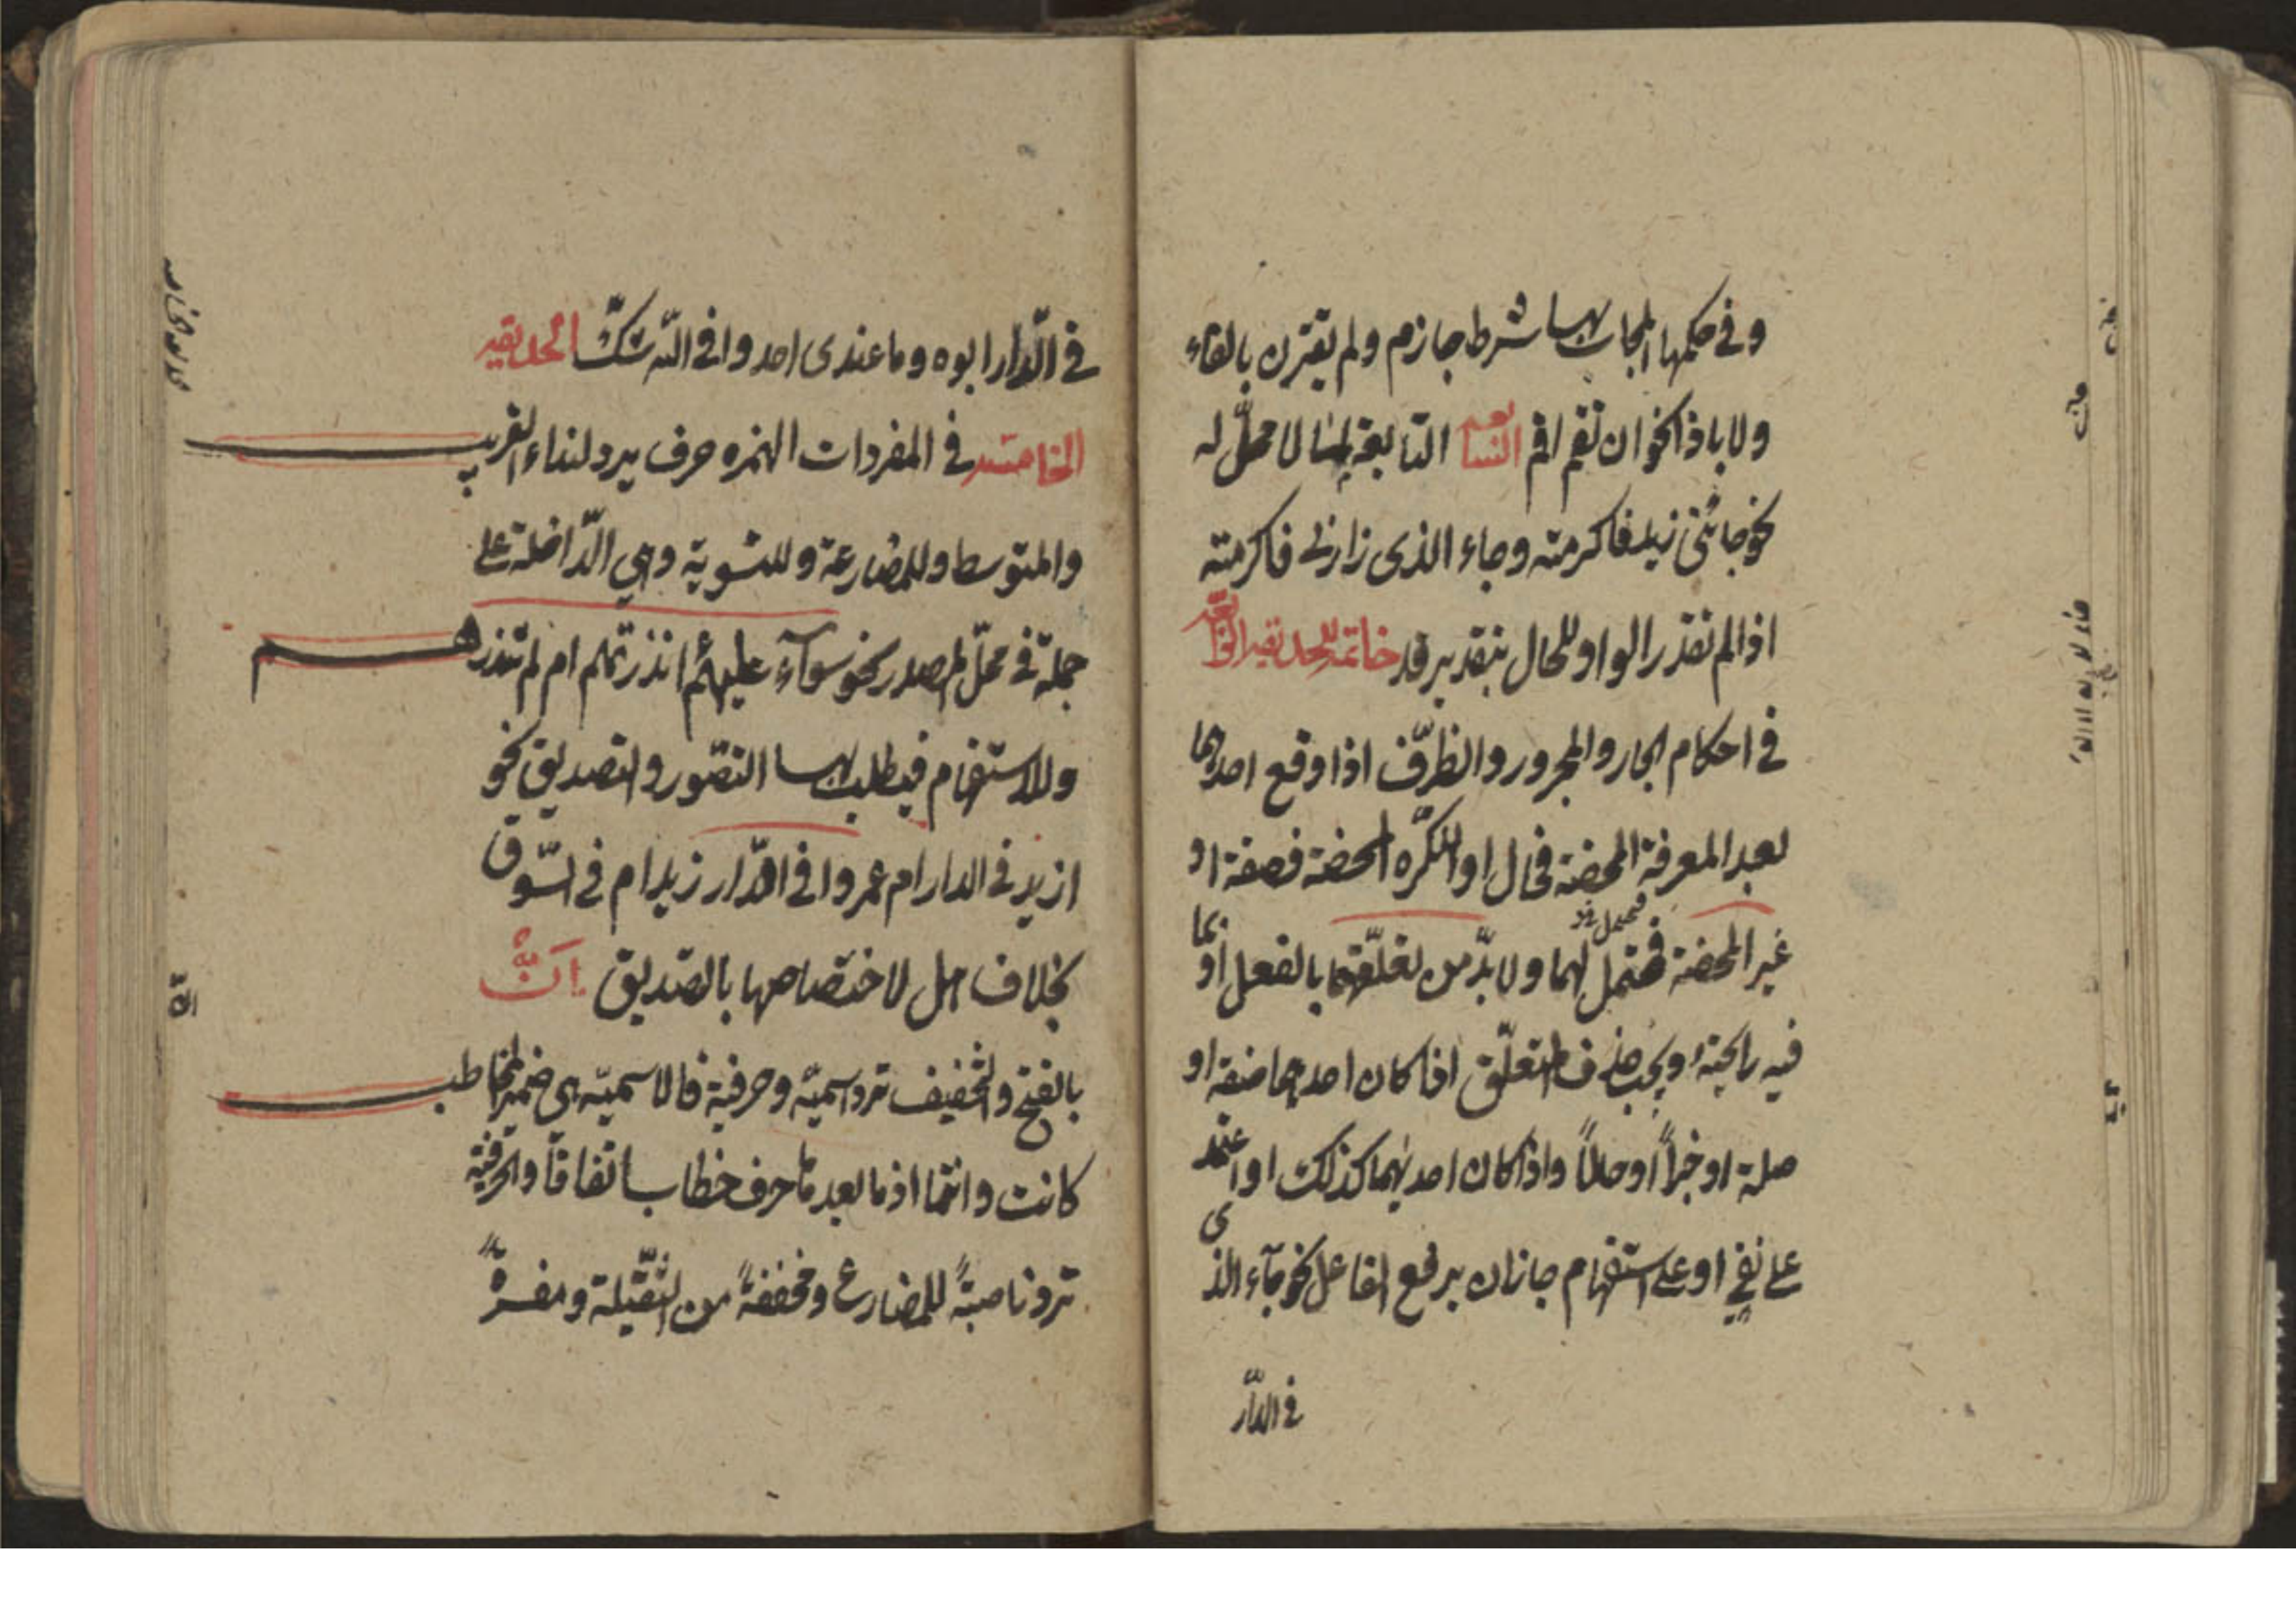 وفی حکمها المجاب بها شرط جازم ولم یقترن بالفاء
ولا باذا نحو ان تقم اقم السابعه التابعة لما لا محلّ له
نحو جائنی زید فاکرمته وجاء الذی زارنی فاکرمته
اذا لم تقدر الواو للحال بتقدیر قد خاتمة
فی احکام الجار والمجرور والظرّف اذا وقع احدهما
بعد المعرفة المحضة فحال او النکره المحضة فصفة او
غیر المحضة فمحتمل لهما ولا بدّ من تعلّقهما بالفعل او بما
فیه رایحتهُ ویجب حذف المتعلّق اذا کان احدهما صفة او
صلة او خبراً او حالاً واذا کان احدیهما کذلک او اعتمد
علی نفی او علی استفهام جاز ان یرفع الفاعل نحو جآء الذی
فی الدّار
فی الدّار ابوه وما عندی احد وافی اللّه شکّ الحدیقه
الخامسه فی المفردات الهمزه حرف یرد لنداء القریب
والمتوسط وللمضارعة وللتسویة وهی الدّاخلة علی
جملة فی محلّ المصدر نحو سوآء علیهم ءانذرتهم ام لم تنذرهم
وللاستفهام فیطلب بها التصّور والتصدیق نحو
ازید فی الدار ام عمرو افی الدّار زید ام فی السّوق
بخلاف هل لاختصاصها بالتصدیق اَن
بالفتح والتخفیف ترد اسمیّه وحرفیة فالاسمیّه هی ضمیر المخاطب
کانت وانتما اذ ما بعدها حرف خطاب اتفاقاً والحرفیّة
ترد ناصبةً للمضارع ومخففةً من الثّقیلة ومفسرةً